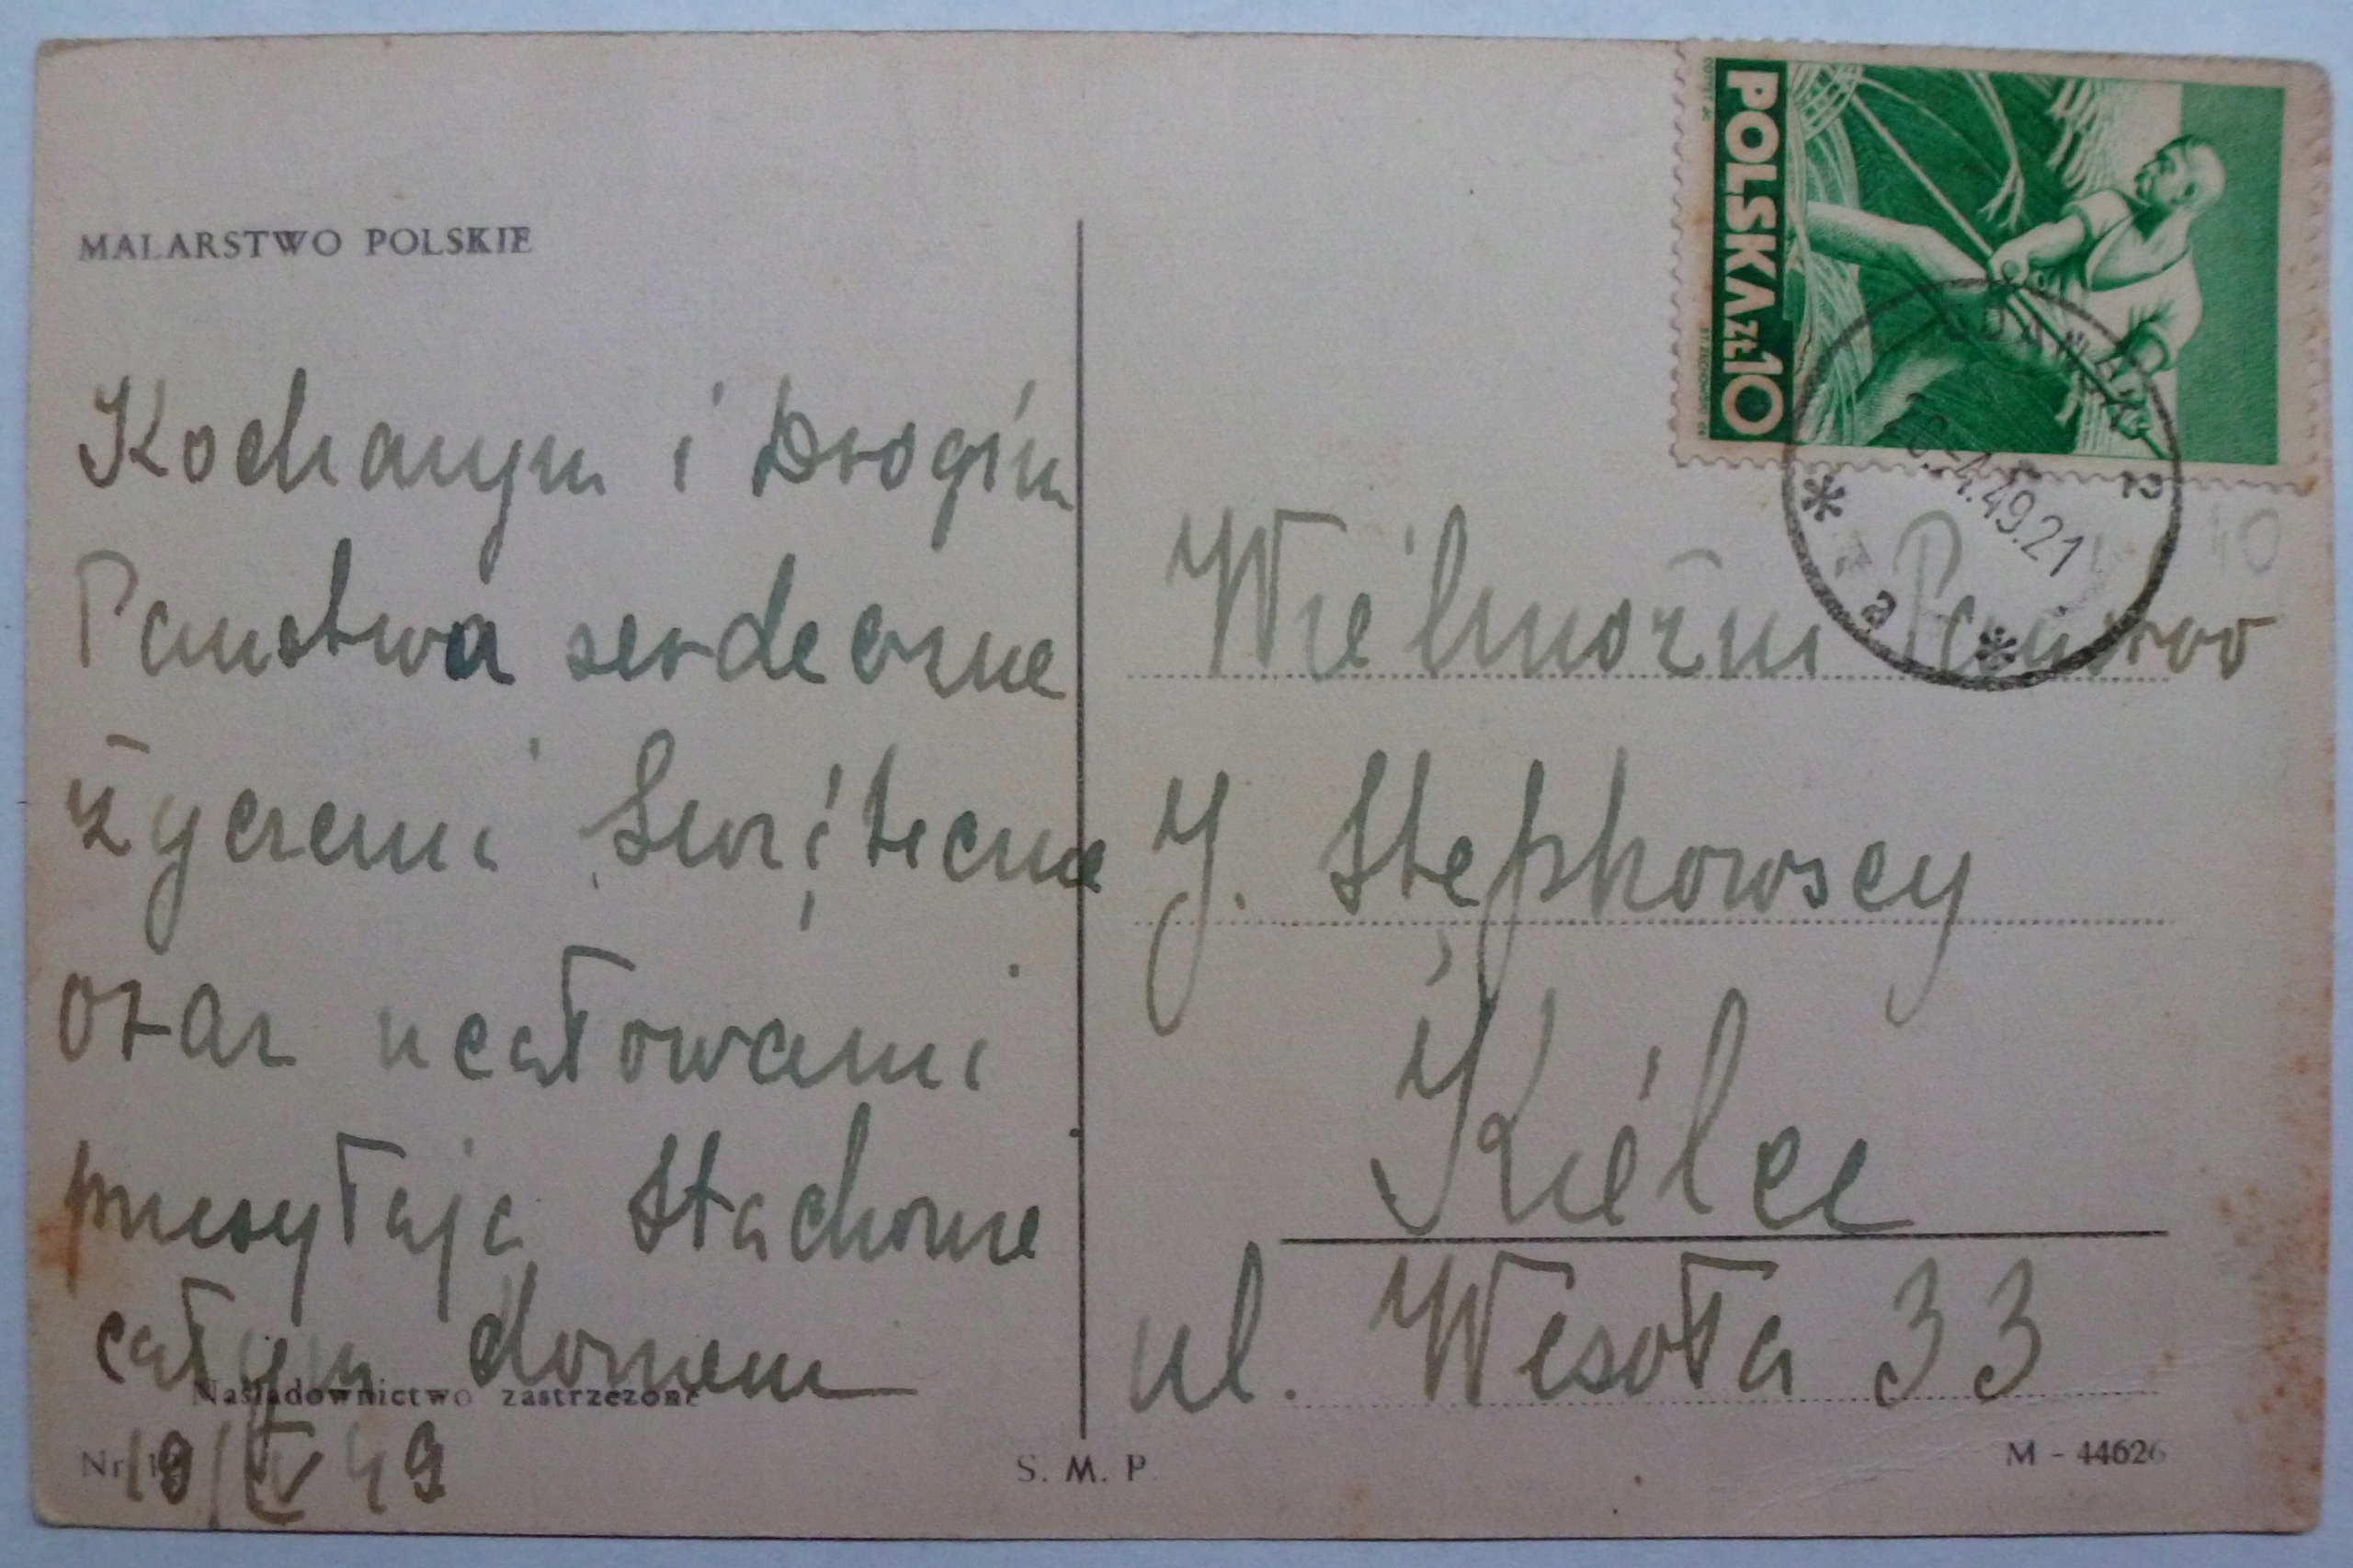 MALARSTWO POLSKIE
Kochanym i Drogim
Państwa serdeczne
życzeni Świąteczne
oraz ucałowani
przesyłają Stachowie
całym domem
Nasladownictwo zastrzeżone
Nr
19/IV 49
S. M. P.
POLSKA ZŁ 10
GDAŃSK
20.-4.49.21
a
40
Wielmożni Państwo
J. Stępkowscy
Kielce
ul. Wesoła 33
M - 44626